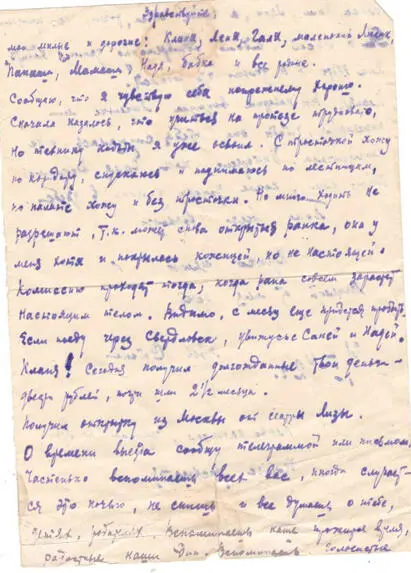 Здравствуйте,
мои милые и дорогие: Клаша, Леня, Галя, маленький
Папаша, Мамаша, Надя, бабка и все родные.
Сообщаю, что я чувствую себя попрежнему хорошо.
Сначала казалось, что учиться на протезе трудновато,
но технику ходьбы я уже освоил. С тросточкой хожу
по коридору, спускаюсь и поднимаюсь по лестницам,
по палате хожу и без тросточки. Но много ходить не
разрешают, т.к. может снова открыться ранка, она у
меня хотя и покрылась кожицей, но не настоящей.
Комиссию проходят тогда, когда рана совсем зарастет
настоящим телом. Видимо, с месяц еще придется пробыть.
Если поеду через Свердловск, увижусь с Саней и Надей.
Клаша! Сегодня получил долгожданные твои деньги -
двести рублей, почти шли 2 1/2 месяца.
Получил открытку из Москвы от сестры Лизы.
О времени выезда сообщу телеграммой или письмом.
Частенько вспоминаешь всех вас, иногда случает-
ся это ночью, не спишь и все думаешь о тебе,
детях, родных. Вспоминаешь наше прожитое время,
радостные наши дни. Вспоминаешь